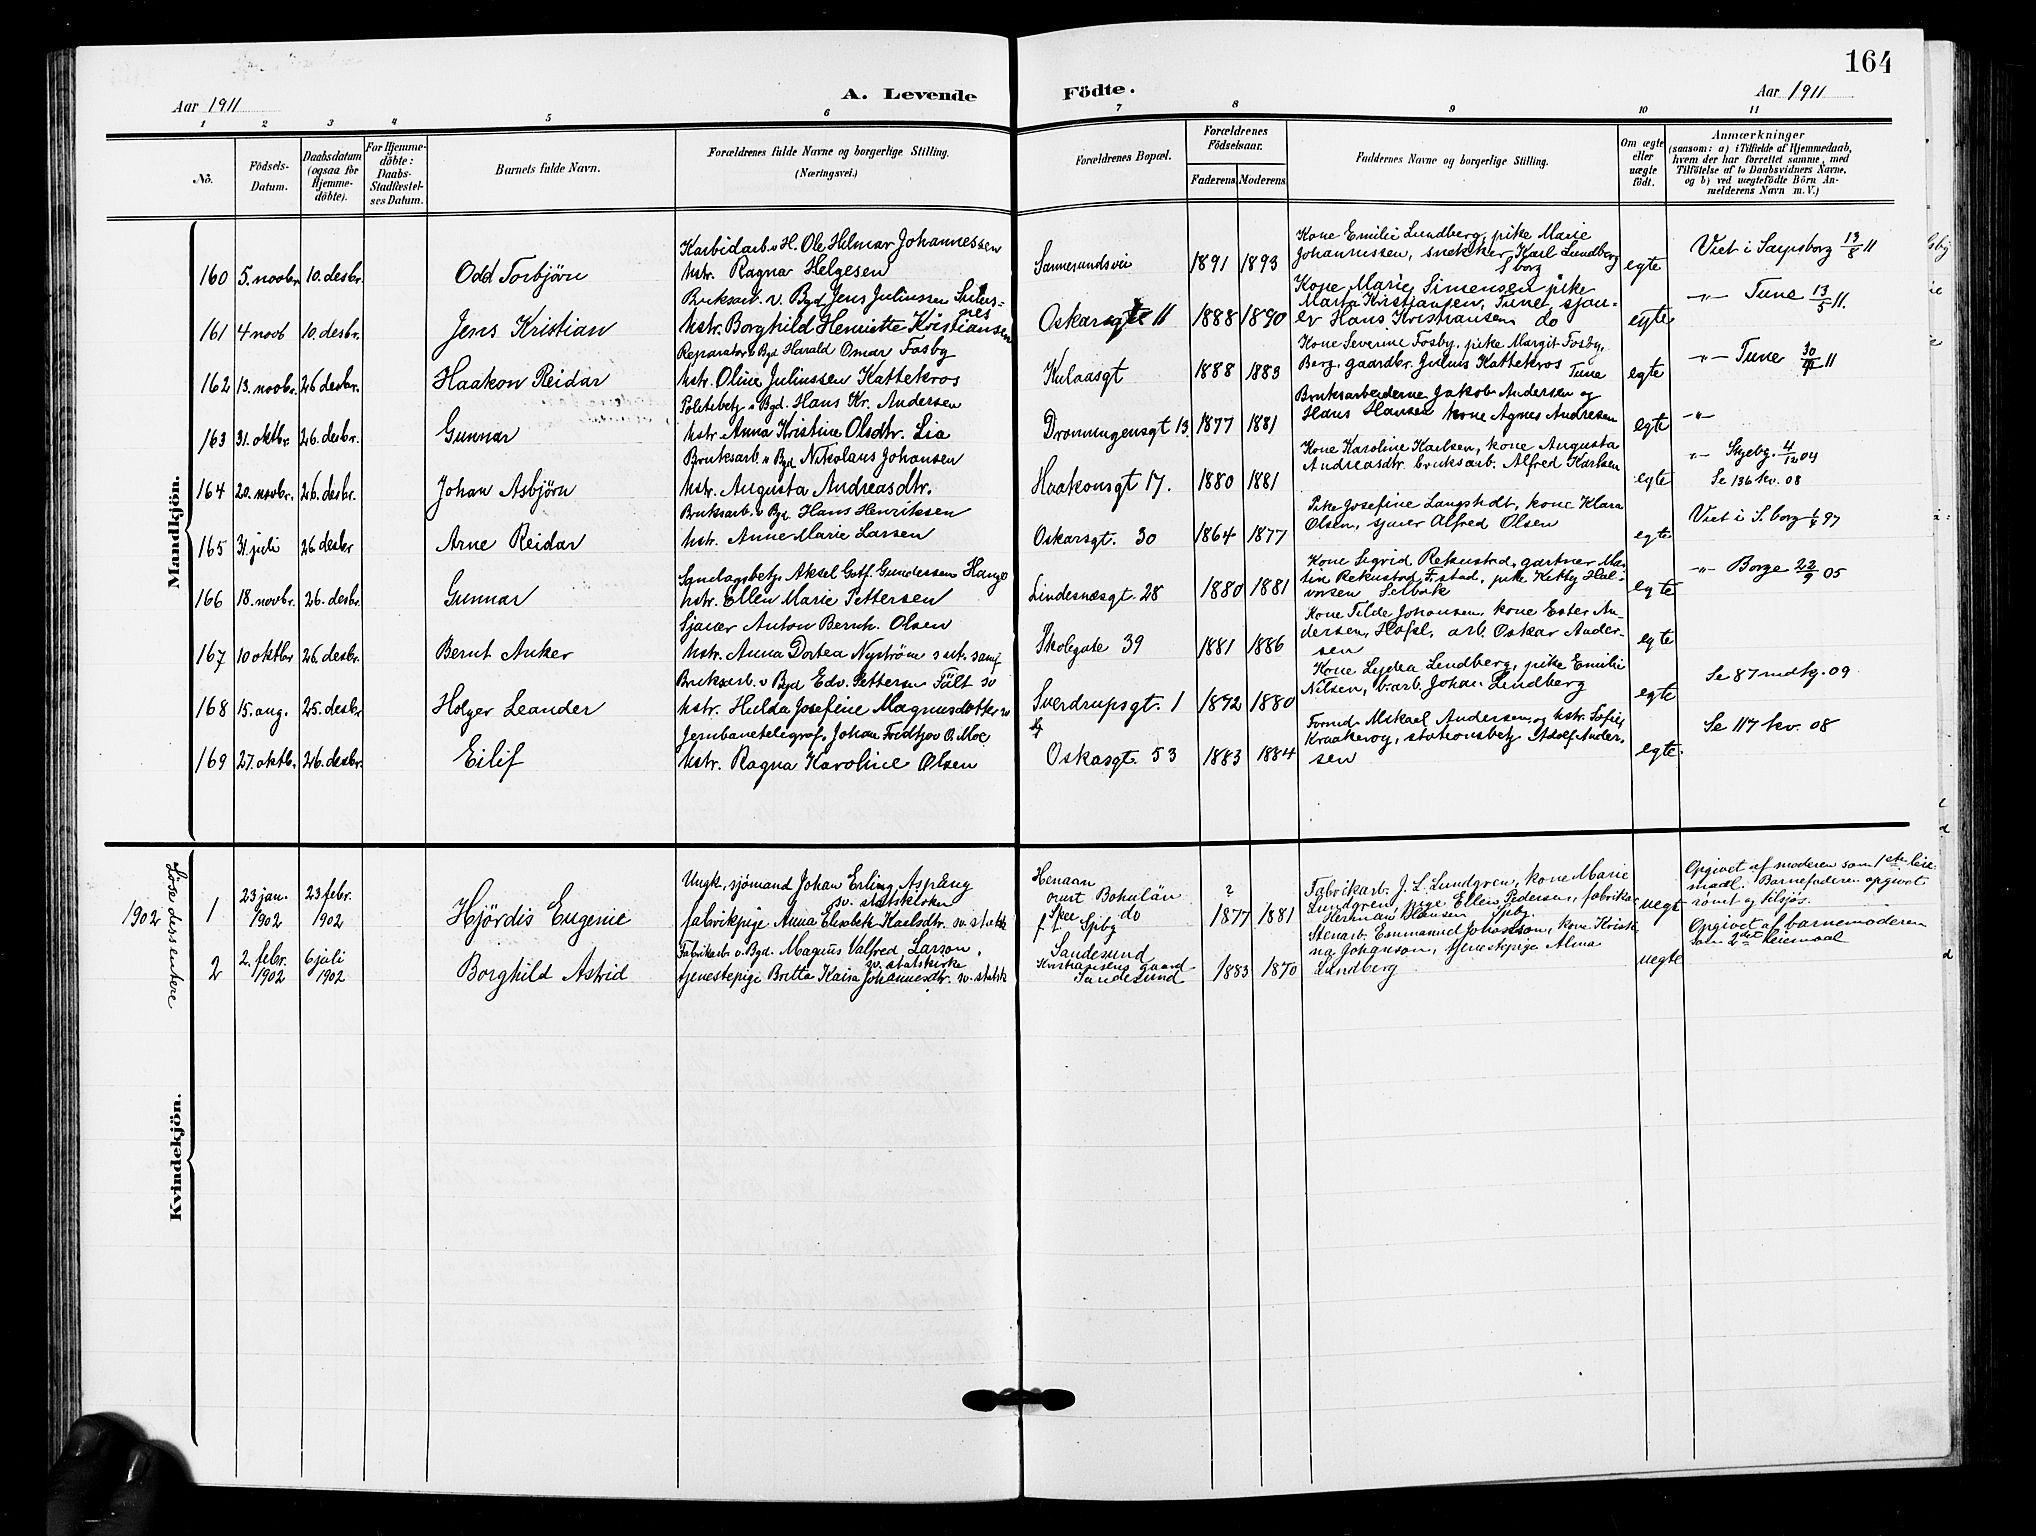 164
Aar 1911
A. Levende
Födte.
Aar 1911
1 2 3 4 5 6 7 8 9 10 11
No.
Födsels-
Datum.
Daabsdatum
(ogsaa for
Hjemme-
döbte).
For Hjemme-
döbte:
Daabs-
Stadfæstel-
ses Datum.
Barnets fulde Navn.
Forældrenes fulde Navne og borgerlige Stilling.
(Næringsvei.)
Forældrenes Bopæl.
Forældrenes
Födselsaar.
Faderens. Moderens.
Faddernes Navne og borgerlige Stilling.
Om ægte
eller
uægte
födt.
Anmærkninger
(saasom: a) i Tilfælde af Hjemmedaab,
hvem der har forrettet samme, med
Tilföielse af to Daabsvidners Navne,
og b) ved uægtefödte Börn An-
melderens Navn m. V.)
Mandkjön.
160 5. novbr. 10. desbr. Odd Torbjørn
Karbidarb. v. H. Ole Hilmar Johannessen
hstr. Ragna Helgesen
Sannesundsvei 1891 1893
Kone Emilie Lundberg, pike Marie
Johannessen, snekker Karl Lundberg
S borg
egte
Viet i Sarpsborg 13/8 11
161 4 novb 10. desbr. Jens Kristian
Bruksarb. v. Bgd Jens Juliussen
hstr. Borghild Henriette Kristiansen
Oskarsgte 11 1888 1890
Kone Marie Simensen, pike
Marta Kristiansen, Tune, sjau-
er Hans Kristiansen do
egte
-"- Tune 13/5 11.
162 13. novbr. 26 desbr. Haakon Reidar
Reparatør v Bgd Harald Omar Fosby
hstr. Oline Juliussen Kattekros
Kulaasgt 1888 1883
Kone Severine Fosby, pike Margit Fosby,
Borg, gaardbr. Julius Kattekros Tune
egte
-"- Tune 11
163 31. oktbr. 26. desbr. Gunnar
Politibetj v Bgd. Hans Kr. Andersen
hstr. Anna Kristine Olsdtr. Lia
Dronningensgt 13. 1877 1881
Bruksarbeiderne Jakob Andersen og
Hans Hansen kone Agnes Andresen
egte
-"-
164 20. novbr. 26. desbr. Johan Asbjørn
Bruksarb. v Bgd Nikolaus Johansen
hstr. Augusta Andreasdtr.
Haakonsgt 17. 1880 1881
Kone Karoline Karlsen, kone Augusta
Andreasdtr. bruksarb. Alfred Karlsen
egte
-"- Skjebg. 4/12 04
Se 136 kv. 08
165 31. juli 26. desbr Arne Reidar
Bruksarb. v Bgd Hans Henriksen
hstr. Anne Marie Larsen
Oskarsgt. 30 1864 1877
Pike Josefine Langstedt, kone Klara
Olsen, sjauer Alfred Olsen
egte
Viet i S. borg 97
166 18. novbr. 26. desbr. Gunnar
Aksel Gotf. Gundersen Hauge
hstr. Ellen Marie Pettersen
Lindesnæsgt 28 1880 1881
Kone Sigrid Rekustad, gartner Mar-
tin Rekustad F.stad, pike Ketty Hal-
vorsen Selbak
egte
-"- Borge 22/9 05
167 10 oktbr 26. desbr. Bernt Anker
Sjauer Anton Bernh. Olsen
hstr. Anna Dortea Nyström
Skolegate 39 1881 1886
Kone Tilde Johansen, kone Ester An-
dersen, Hafsl, arb. Oskar Ander-
sen
egte
168 15. aug. 25. desbr Holger Leander
Bruksarb v Bgd Edv. Pettersen Fält sv
hstr. Hulda Josefine Magnusdotter sv
Sverdrupsgt. 1 1872 1880
Kone Lydea Lindberg, pike Emilie
Nilsen, b.arb. Johan Lindberg
egte
Se 87 mdkj. 09
169 27. oktb. 26. desbr. Eilif
Jernbanetelegraf. Johan Fredtjov O. Moe
hstr. Ragna Karoline Olsen
Oskasgt. 53 1883 1884
Formd Mikael Andersen og hstr. Sofie,
Kraakerøy, stationsbetj Adolf Ander-
sen
egte.
Se 117 kv. 08
Kvindekjön.
Løse dissentere
1902
1 23 jan. 1902 23 febr. 1902 Hjördis Eugenie
Ungk., sjömand Johan Erling Aspång
sv. statskirken
fabrikpige Anna Elisabeth Karlsdtr. sv. statsk
Henaan
orust Bohuslän
do
f. t. Spbg
? 1877 1881
Fabrikarb. J. L. Lundgren, kone Marie
Lundgren, pige Ellen Pedersen, fabrika
Herman Hansen Spbg.
uegt
Opgivet af moderen som 1ste leie-
maal. Barnefaderen opgivet
rømt og tilsjøs.
2 2. febr. 1902 6 juli 1902 Borghild Astrid
Fabrikarb. v. Bgd. Magnus Valfred Larson,
sv. statskirke
tjenestepige Britta Kaisa Johannesdtr. sv. statsk
Sandesund
Kristiansens gaard
Sandesund
1883 1870
Stenarb. Emmanuel Johansson, kone Kristi-
na Johanson, tjenestpige Alma
Lundberg
uegte
Opgivet af barnemoderen
som 2det leiemaal